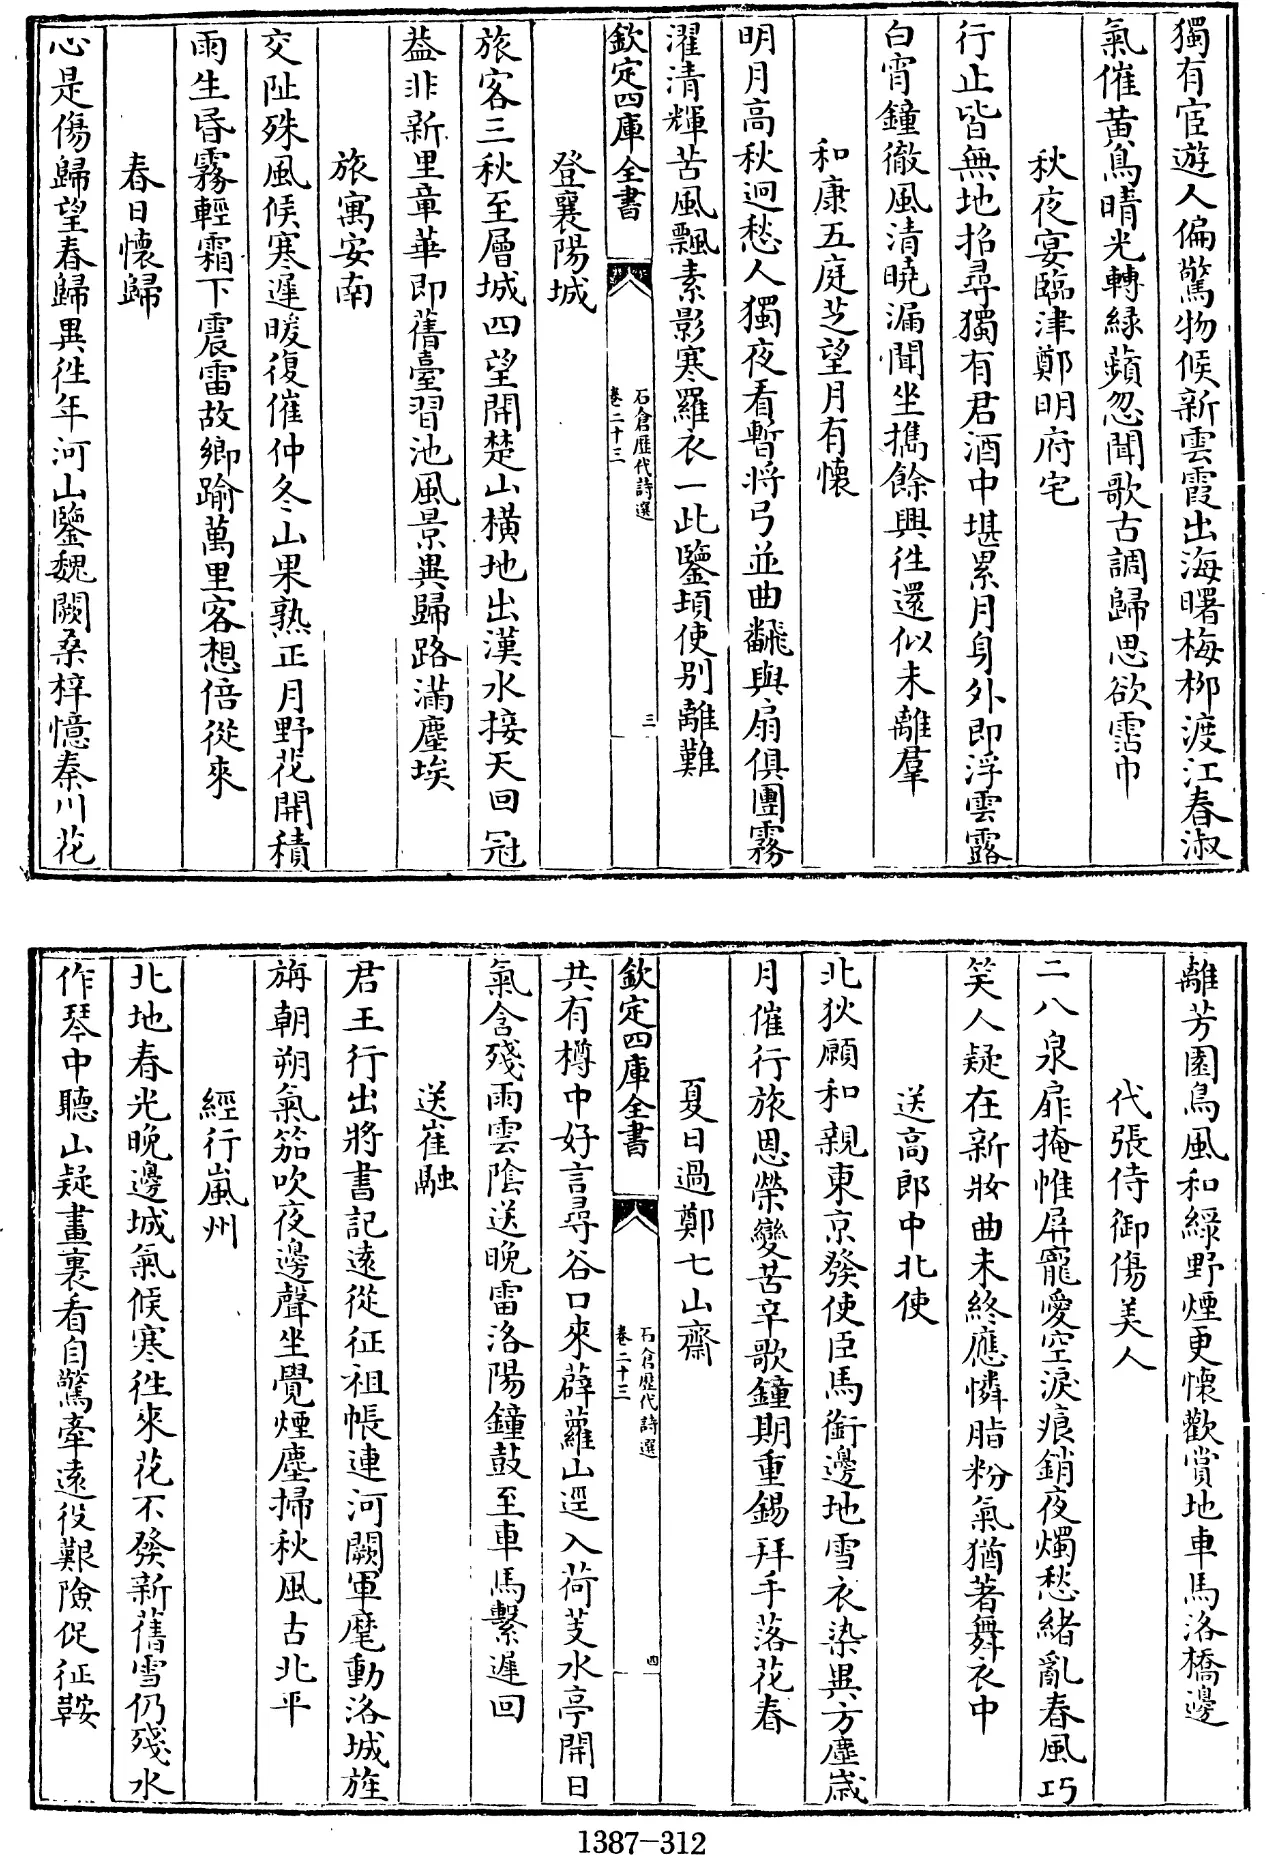 獨有宦遊人偏驚物候新雲霞出海曙梅柳渡江春淑
氣催黄鳥晴光轉緑蘋忽聞歌古調歸思欲霑巾
秋夜宴臨津鄭明府宅
行止皆無地招尋獨有君酒中堪累月身外即浮雲露
白宵鐘徹風清曉漏聞坐攜餘興徃還似未離羣
和康五庭芝望月有懷
明月高秋迥愁人獨夜看暫將弓並曲飜與扇俱團霧
濯清輝苦風飄素影寒羅衣一此鑒頃使别離難
欽定四庫全書
石倉歷代詩選
卷二十三
三
登襄陽城
旅客三秋至層城四望開楚山横地出漢水接天回冠
葢非新里章華即舊臺習池風景異歸路滿塵埃
旅寓安南
交阯殊風候寒遲暖復催仲冬山果熟正月野花開積
雨生昏霧輕霜下震雷故鄉踰萬里客想倍從來
春日懷歸
心是傷歸望春歸異徃年河山鑒魏闕桑梓憶秦川花
離芳園鳥風和緑野煙更懷歡賞地車馬洛橋邊
代張侍御傷美人
二八泉扉掩帷屏寵愛空淚痕銷夜燭愁緒亂春風巧
笑人疑在新妝曲未終應憐脂粉氣猶著舞衣中
送高郎中北使
北狄願和親東京發使臣馬銜邊地雪衣染異方塵歲
月催行旅恩榮變苦辛歌鐘期重錫拜手落花春
夏日過鄭七山齋
欽定四庫全書
石倉歷代詩選
卷二十三
四
共有樽中好言尋谷口來薜蘿山逕入荷芰水亭開日
氣含殘雨雲陰送晚雷洛陽鐘鼓至車馬繫遲回
送崔融
君王行出將書記遠從征祖帳連河闕軍麾動洛城旌
旃朝朔氣笳吹夜邊聲坐覺煙塵掃秋風古北平
經行嵐州
北地春光晚邊城氣候寒徃來花不發新舊雪仍殘水
作琴中聽山疑畫裏看自驚牽遠役艱險促征鞍
1387-312